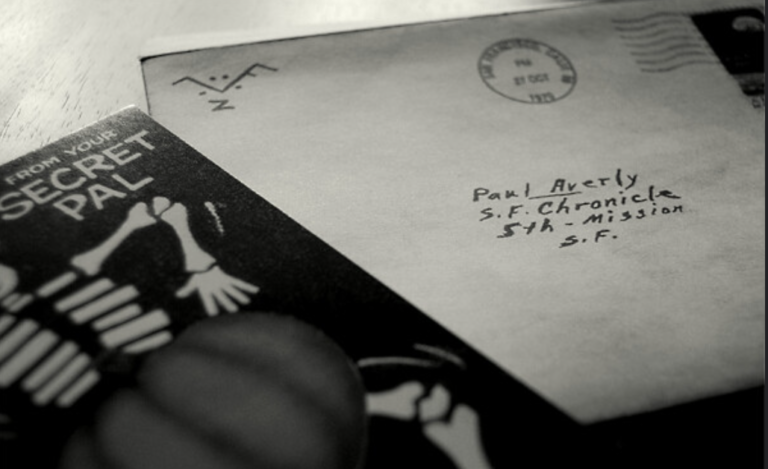 FROM YOUR
SECRET
PAL
SAN FRANCISCO, CALIF
PM
27 OCT
1975
N
Paul Averly
S.F. Chronicle
5th - Mission
S.F.